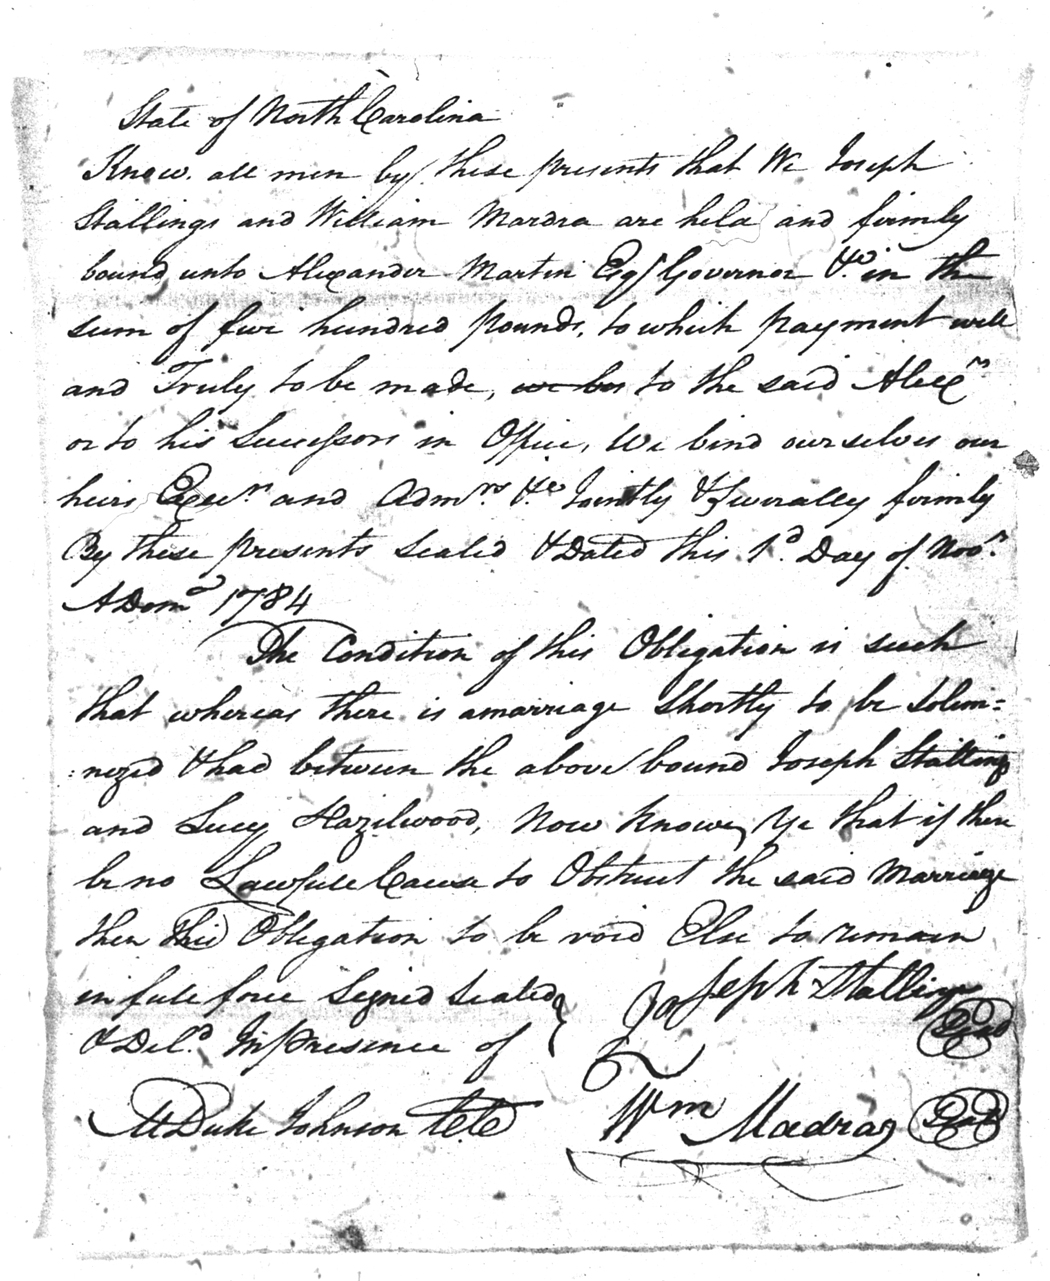 State of North Carolina
Know all men by these presents that We Joseph
Stallings and William Mardra are held and firmly
bound unto Alexander Martin Esqr Governor &c in the
sum of five hundred pounds, to which payment well
and Truly to be made, to the said Alexr
or to his Successors in Office, We bind ourselves our
heirs Exers and Admrs &c Jointly & Severally firmly
By these presents Sealed & Dated this 1d Day of Novr
A Domo 1784
The Condition of this Obligation is such
that whereas there is a marriage Shortly to be Solem=
:nized & had between the above bound Joseph Stallings
and Lucy Hazilwood, Now Know Ye that if there
be no Lawfull Cause to Obstruct the said Marriage
then this Obligation to be void Else to remain
in full force Signed Sealed
& Deld In presence of
Joseph Stallings Seal
Wm Madra Seal
Duke Johnson